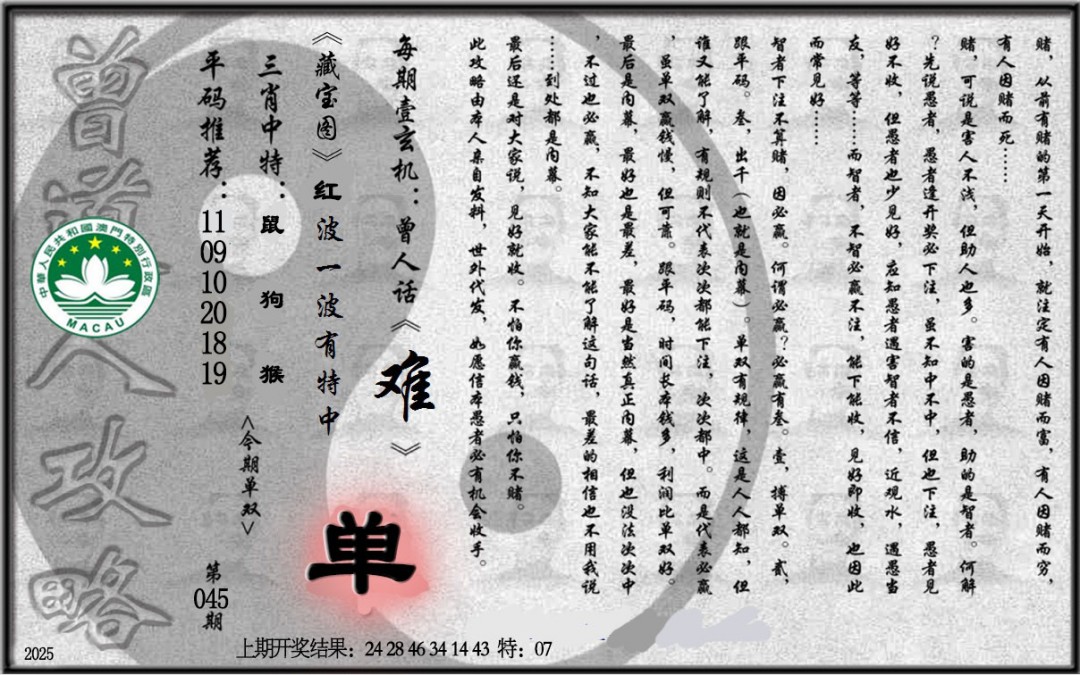 赌，从前有赌的第一天开始，就注定有人因赌而富，有人因赌而穷，
有人因赌而死……
赌，可说是害人不浅，但助人也多。害的是愚者，助的是智者。何解
？先说愚者，愚者逢开奖必下注，虽不知中不中，但也下注，愚者见
好不收，但愚者也少见好，应知愚者遇害智者不信，近观水，遇愚当
友，等等……而智者，不智必赢不注，能下能收，见好即收，也因此
而常见好……
智者下注不算赌，因必赢。何谓必赢？必赢有叁。壹，搏单双。贰，
跟平码。叁，出千（也就是内幕）。单双有规律，这是人人都知，但
谁又能了解，有规则不代表次次都能下注，次次都中。而是代表必赢
，虽单双赢钱慢，但可靠。跟平码，时间长本钱多，利润比单双好。
最后是内幕，最好也是最差，最好是当然真正内幕，但也没法次次中
，不过也必赢，不知大家能不能了解这句话，最差的相信也不用我说
……到处都是内幕。
最后还是对大家说，见好就收。不怕你赢钱，只怕你不赌。
此攻略由本人亲自发料，世外代发，如愿信本愚者必有机会收手。
每期壹玄机：曾人话《难》
《藏宝图》红波一波有特中
单
三肖中特：鼠 狗 猴
<今期单双>
平码推荐：11 09 10 20 18 19
第045期
曾道人攻略
中華人民共和國澳門特別行政區
MACAU
2025
上期开奖结果：24 28 46 34 14 43 特：07